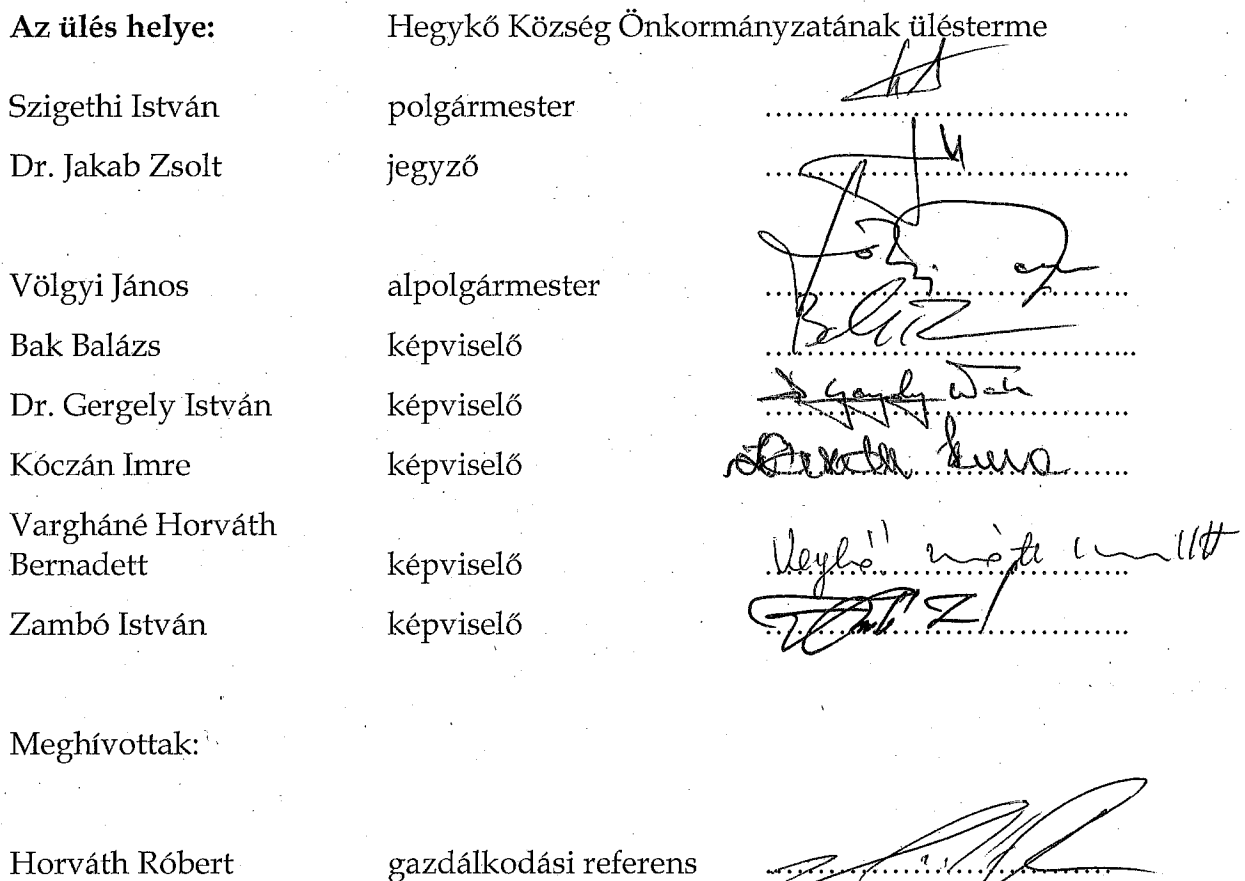 Az ülés helye: Hegykő Község Önkormányzatának ülésterme
Szigethi István polgármester ........................................
Dr. Jakab Zsolt jegyző ........................................
Völgyi János alpolgármester ........................................
Bak Balázs képviselő ........................................
Dr. Gergely István képviselő ........................................
Kóczán Imre képviselő ........................................
Vargháné Horváth
Bernadett képviselő ........................................
Zambó István képviselő ........................................
Meghívottak:
Horváth Róbert gazdálkodási referens ........................................